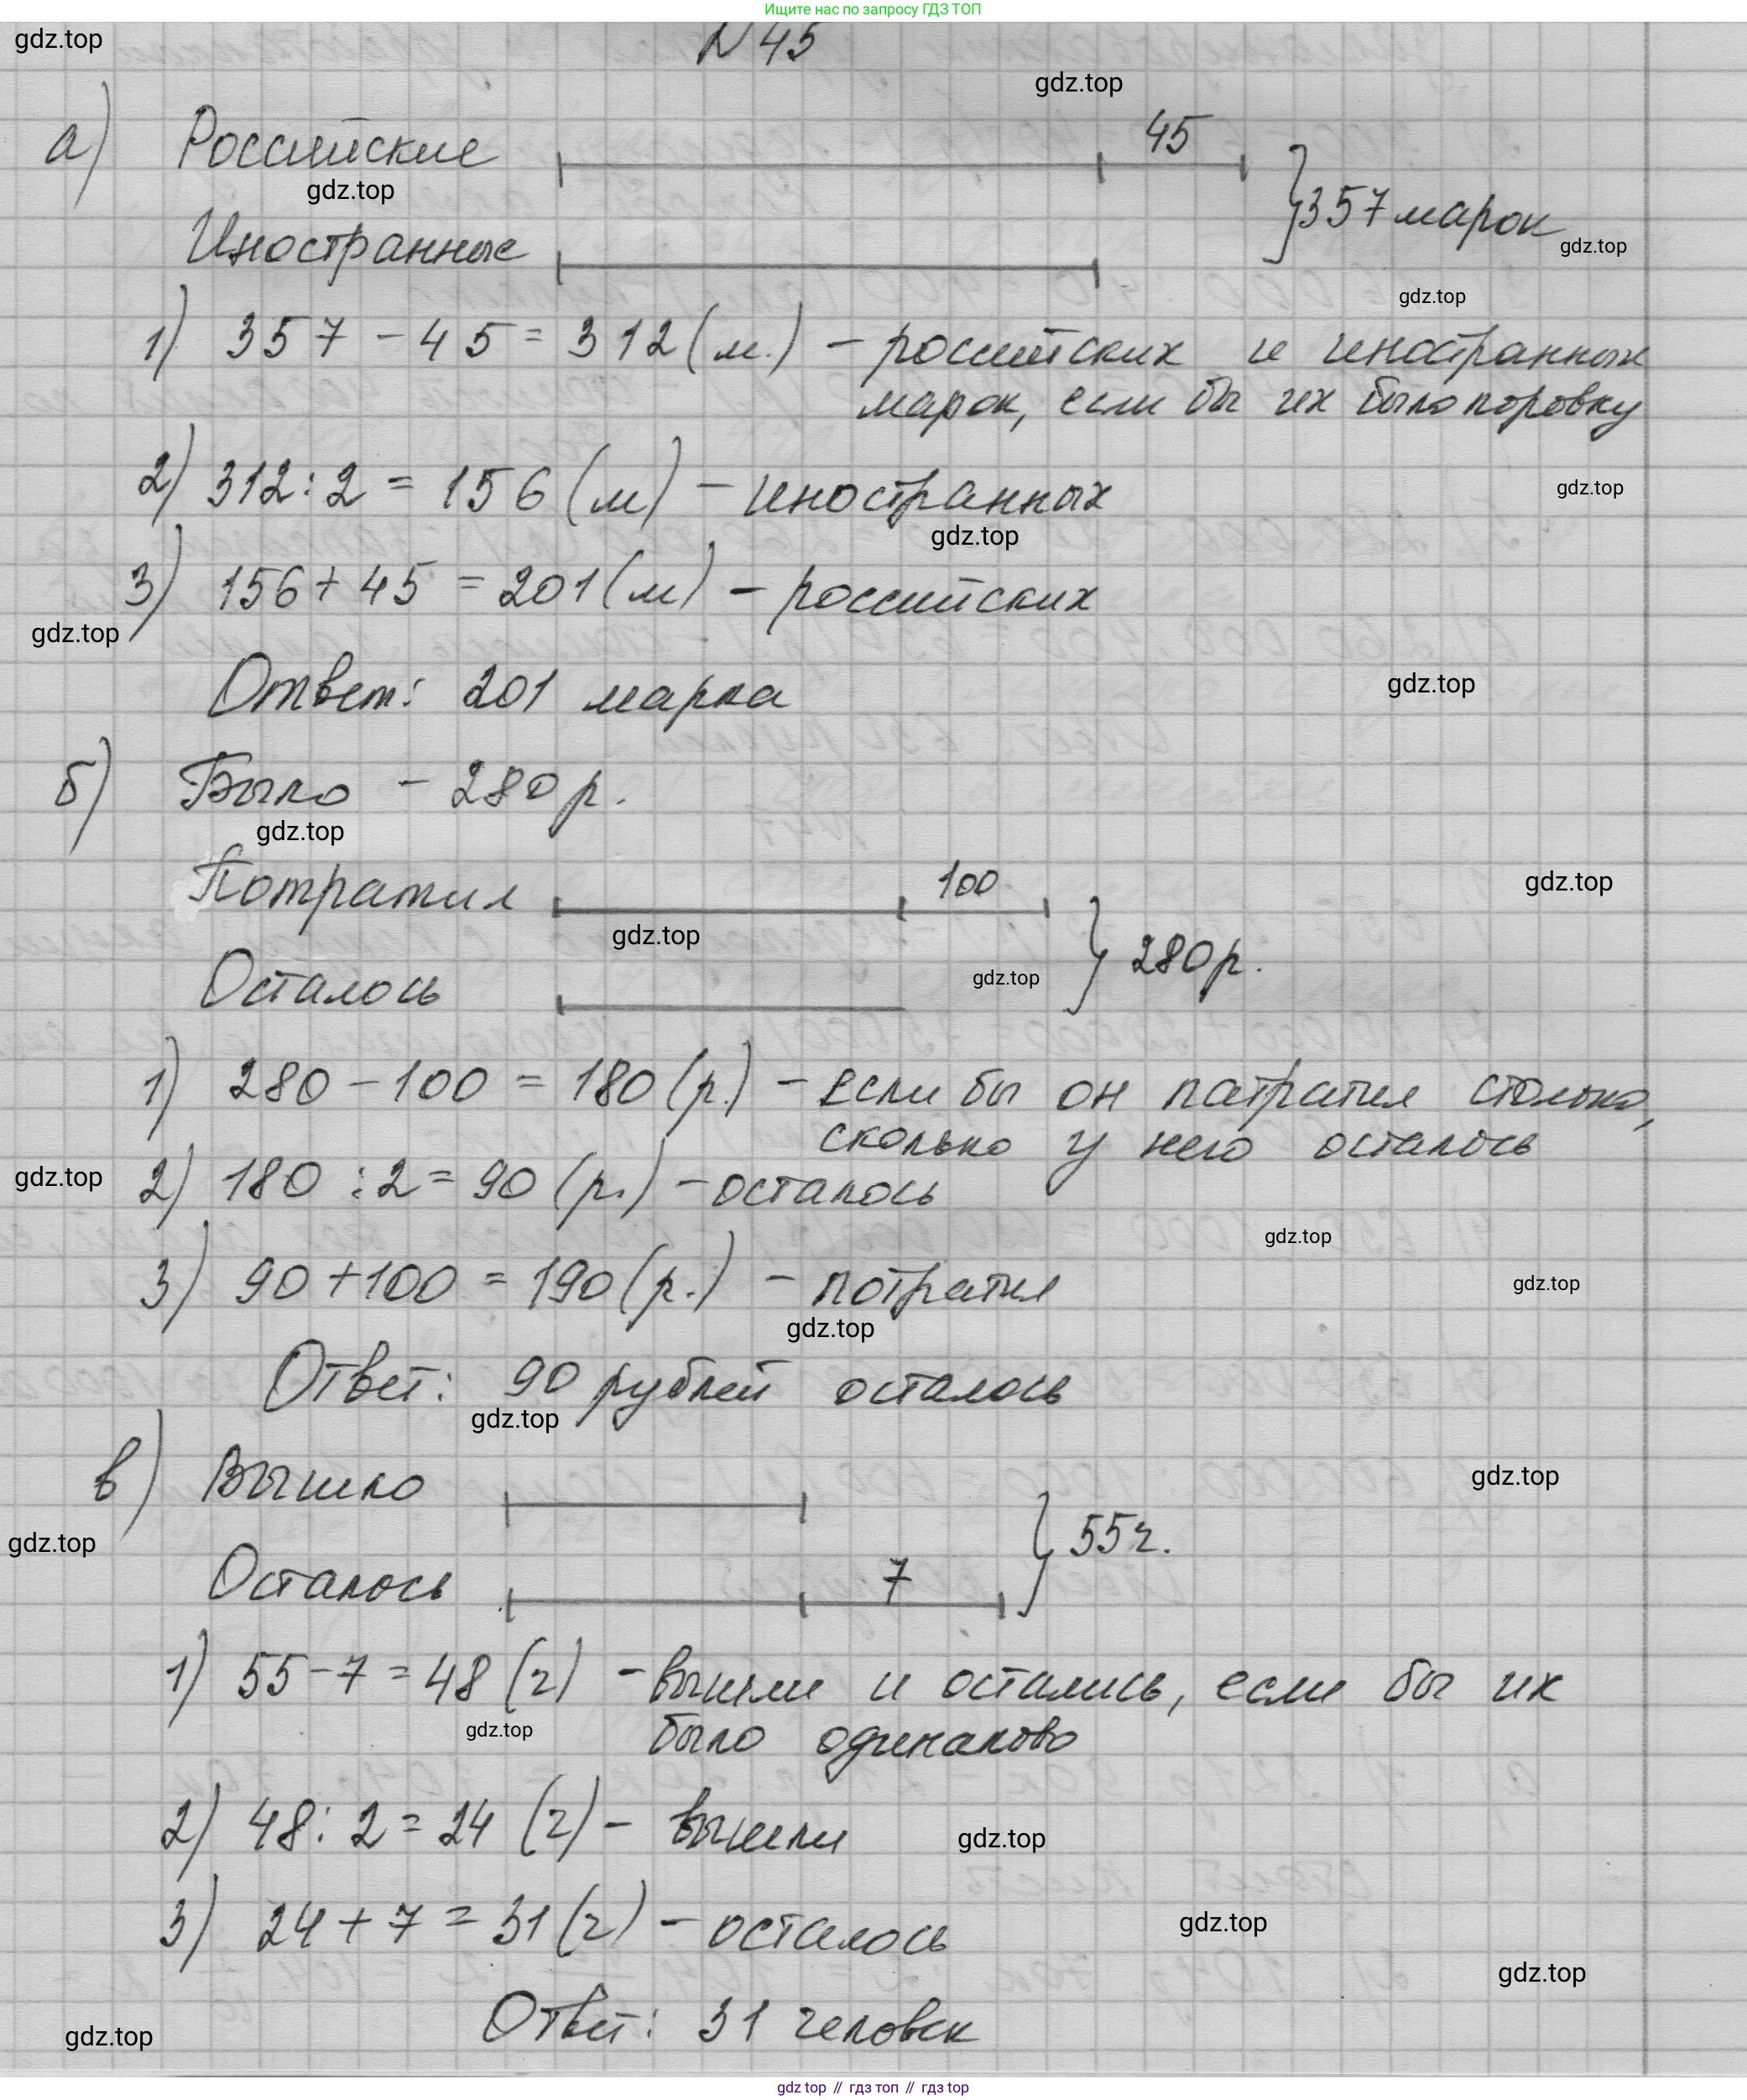 Ищите нас по запросу ГДЗ ТОП
gdz.top
N 45
gdz.top
а) Российские 45
gdz.top
357 марок
Иностранные
gdz.top
gdz.top
1) 357 - 45 = 312 (м.) - российских и иностранных
марок, если бы их было поровну
2) 312 : 2 = 156 (м) - иностранных
gdz.top
gdz.top
3) 156 + 45 = 201 (м) - российских
gdz.top
Ответ: 201 марка
gdz.top
б) Было - 280 р.
gdz.top
Потратил 100
gdz.top
gdz.top
280 р.
Осталось
gdz.top
1) 280 - 100 = 180 (р.) - если бы он патратил столько,
сколько у него осталось
gdz.top
2) 180 : 2 = 90 (р.) - осталось
gdz.top
3) 90 + 100 = 190 (р.) - потратил
gdz.top
gdz.top
Ответ: 90 рублей осталось
gdz.top
в) Вышло
gdz.top
gdz.top
55 ч.
Осталось 7
1) 55 - 7 = 48 (ч) - вышли и остались, если бы их
gdz.top
было одинаково
2) 48 : 2 = 24 (ч) - вышли
gdz.top
3) 24 + 7 = 31 (ч) - осталось
gdz.top
gdz.top
Ответ: 31 человек
gdz.top
gdz top // гдз топ // гдз top